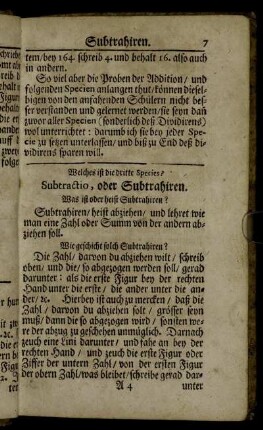 Subtrahiren. 7
tem/bey 164 schreib 4. und behalt 16. also auch
in andern.
So viel aber die Proben der Addition/ und
folgenden Specien anlangen thut/ können diesel-
bigen von den anfahenden Schülern nicht bes-
ser verstanden und gelernet werden/sie seyn dañ
zuvor aller Specien (sonderlich deß Dividirens)
wol unterrichtet: darumb ich sie bey jeder Spe-
cie zu setzen unterlassen/ und biß zu End deß di-
vidirens sparen will.
Welches ist die dritte Species/
Subtractio, oder Subtrahiren.
Was ist oder heist Subtrahiren?
Subtrahiren/ heist abziehen/ und lehret wie
man eine Zahl oder Summ von der andern ab-
ziehen soll.
Wie geschicht solch Subtrahiren?
Die Zahl/ darvon du abziehen wilt/ schreib
oben: und die/ so abgezogen werden soll/ gerad
darunter: als die erste Figur bey der rechten
Hand unter die erste/ die ander unter die an-
der/ꝛc. Hierbey ist auch zu mercken/ daß die
Zahl/ darvon du abziehen solt/ grösser seyn
muß/ dann die so abgezogen wird/ sonsten we-
re der abzug zu geschehen unmüglich. Darnach
zeuch eine Lini darunter/ und fahe an bey der
rechten Hand/ und zeuch die erste Figur oder
Ziffer der untern Zahl/ von der ersten Figur
der obern Zahl/was bleibet/schreibe gerad dar-
A 4 unter